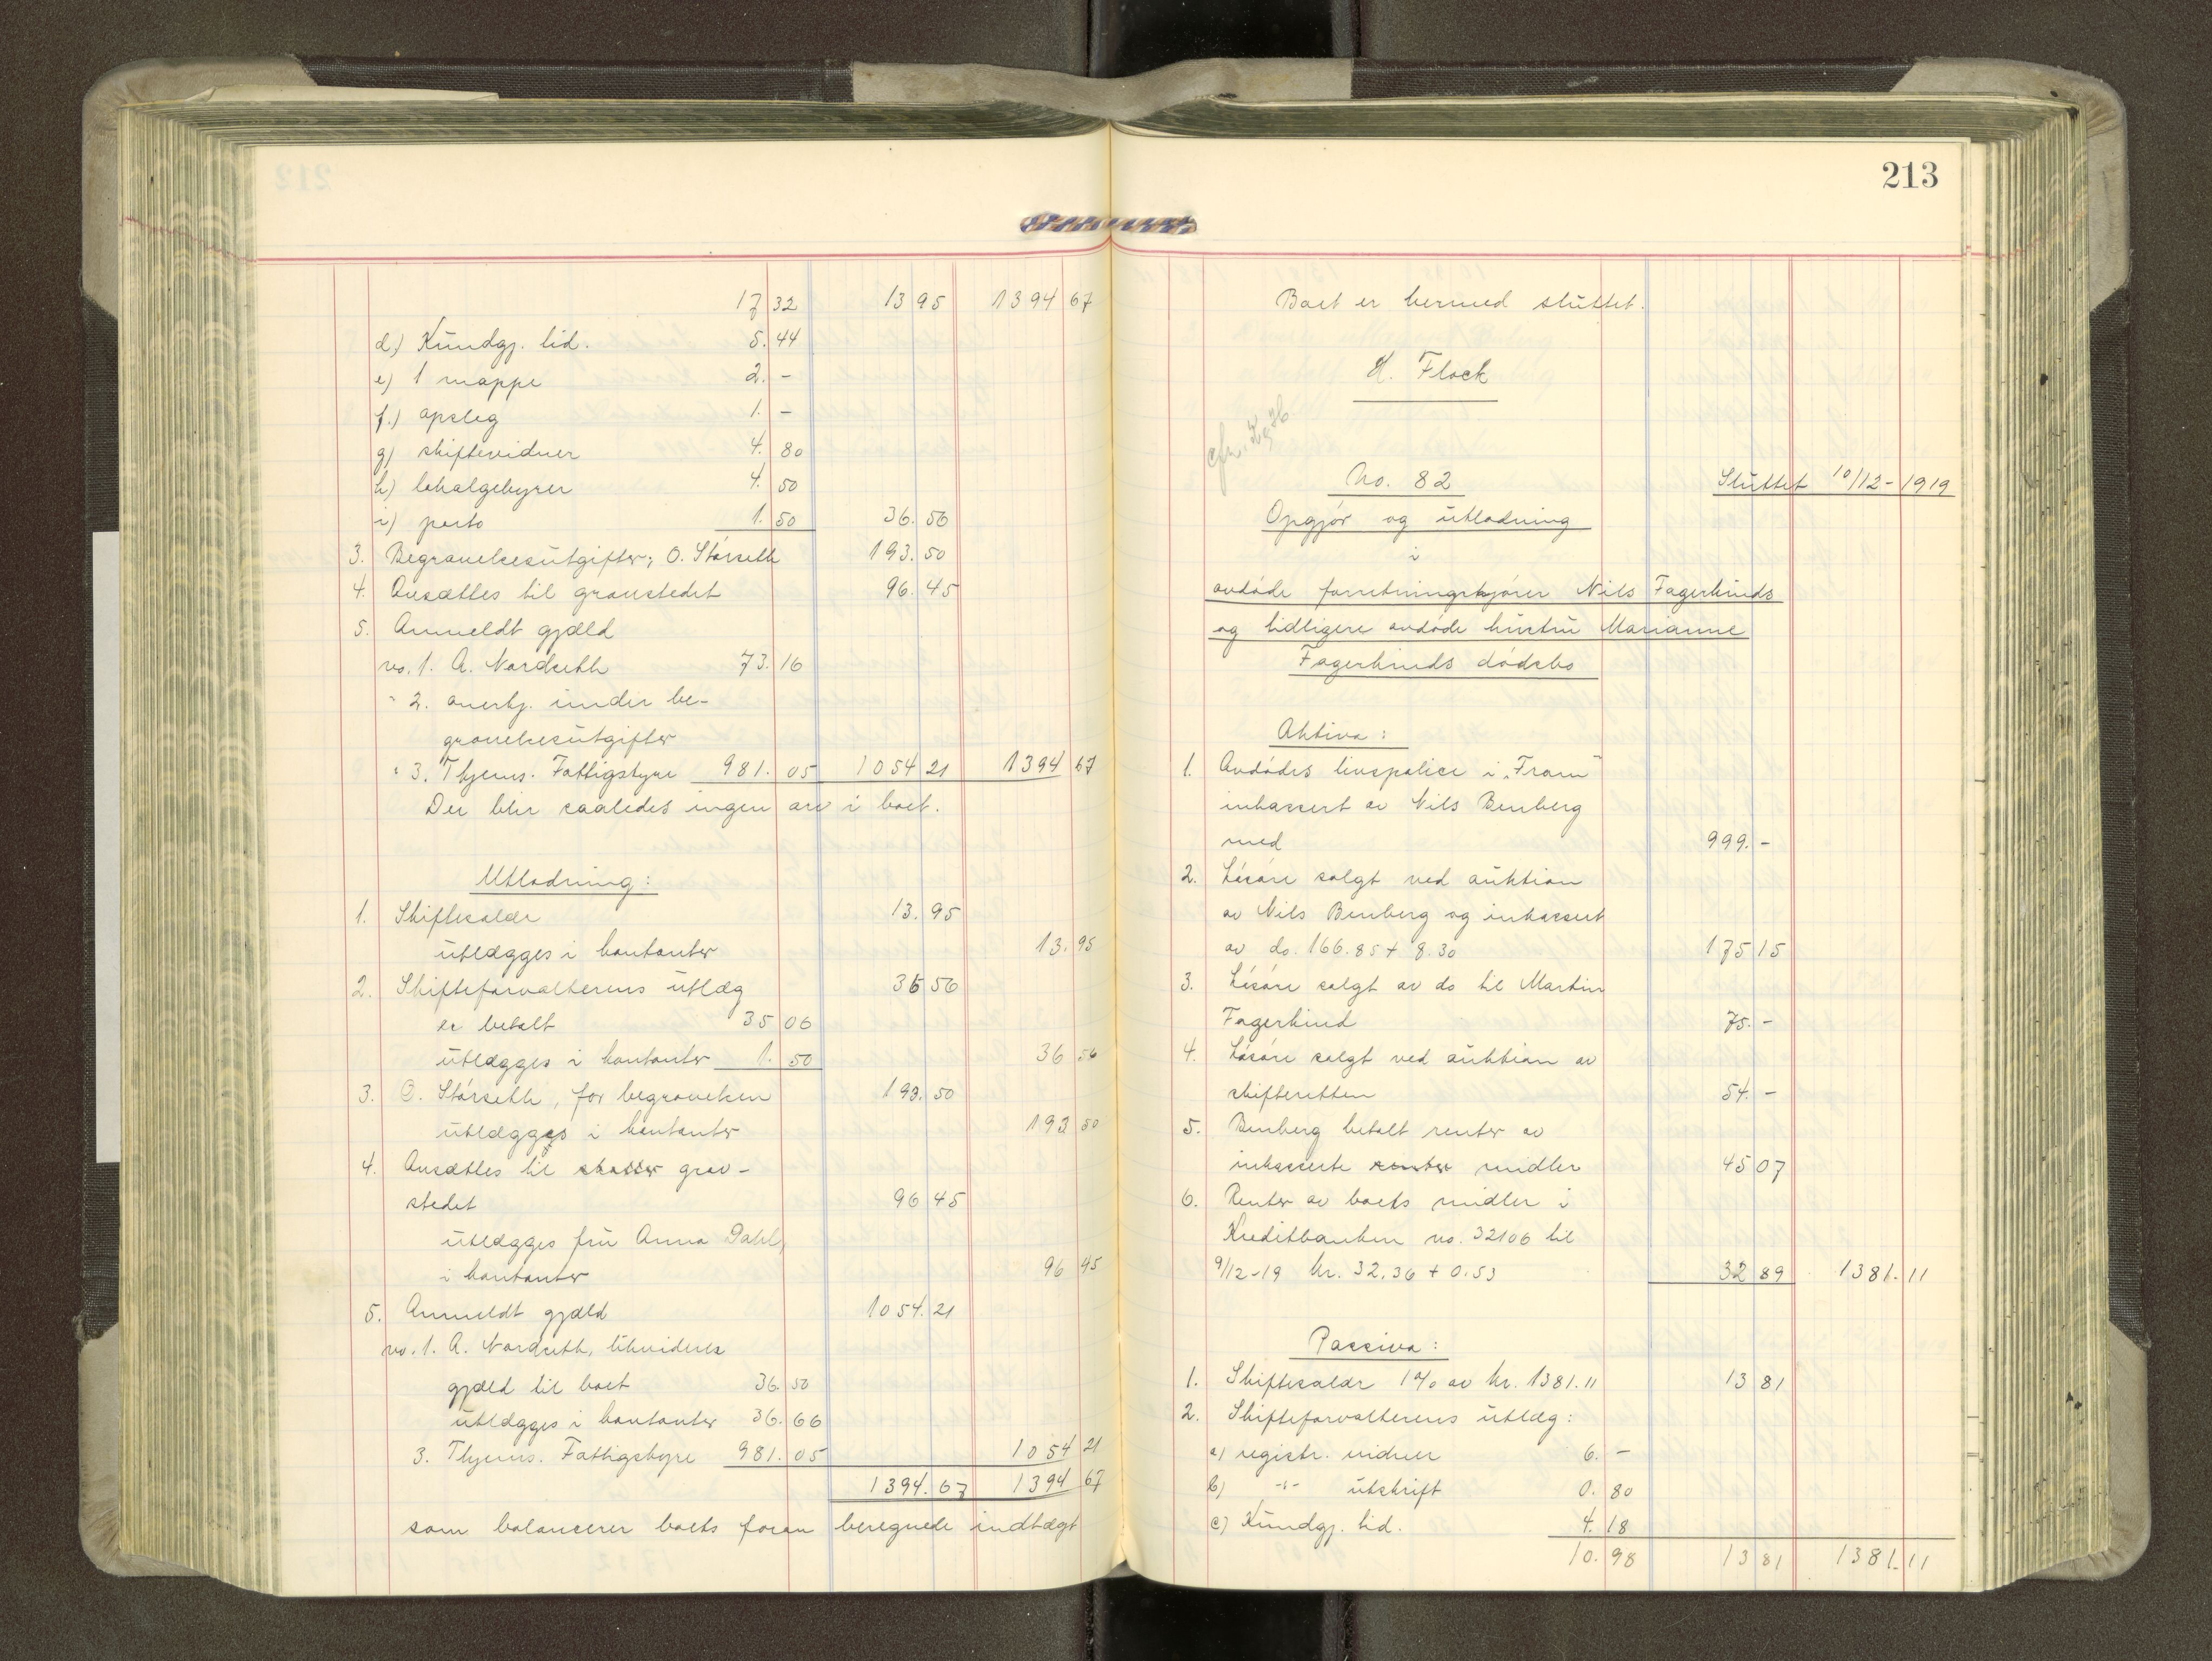 17 32 13 95 1394 67
d.) Kundgj. tid. 5. 44
e) 1 mappe 2. -
f.) opsleg 1. -
g) skiftevidner 4. 80
h) lokalgebyrer 4. 50
i) porto 1. 50 36. 56
3. Begravelsesutgifter; O. Størseth 193. 50
4. Avsættes til gravstedet 96. 45
5. Anmeldt gjæld
no. 1. A. Nordseth 73. 16
" 2. anerkj. under be-
gravelsesutgifter
" 3. Thjems. Fattigstyre 981. 05 1054 21 1394 67
Der blir saaledes ingen arv i boet.
Utlodning:
1. Skiftesalær 13. 95
utlægges i kontanter 13. 95
2. Skifteforvalterens utlæg 36 56
er betalt 35 06
utlægges i kontanter 1. 50 36 56
3. O. Størseth, for begravelsen 193. 50
utlægges i kontanter 193 50
4. Avsættes til grav-
stedet 96 45
utlægges fru Anna Dahl,
i kontanter 96 45
5. Anmeldt gjæld 1054. 21
no. 1. A. Nordseth, likvideres
gjæld til boet 36. 50
utlægges i kontanter 36. 66
3. Thjems. Fattigstyre 981. 05 1054 21
1394. 67 1394 67
som balancerer boets foran beregnede indtægt
213
Boet er hermed sluttet.
H. Flock
No. 82 Sluttet 10/12-1919
Opgjør og utlodning
i
avdøde forretningskjører Nils Fagerlunds
og tidligere avdøde hustru Marianne
Fagerlunds dødsbo
Aktiva:
1. Avdødes livspolice i "Fram"
inkassert av Nils Benberg
med 999. -
2. Løsøre solgt ved auktion
av Nils Benberg og inkassert
av do. 166.85 + 8.30 175 15
3. Løsøre solgt av do til Martin
Fagerlund 75. -
4. Løsøre solgt ved auktion av
skifteretten 54. -
5. Benberg betalt renter av
inkasserte renter midler 45 07
6. Renter av boets midler i
Kreditbanken no. 32106 til
9/12-19 kr. 32.36 + 0.53 32 89 1381. 11
Passiva:
1. Skiftesalær 1% av kr. 1381.11 13 81
2. Skifteforvalterens utlæg:
a) registr. vidner 6. -
b) -"- utskrift 0. 80
c) Kundgj. tid. 4. 18
10. 98 13 81 1381. 11